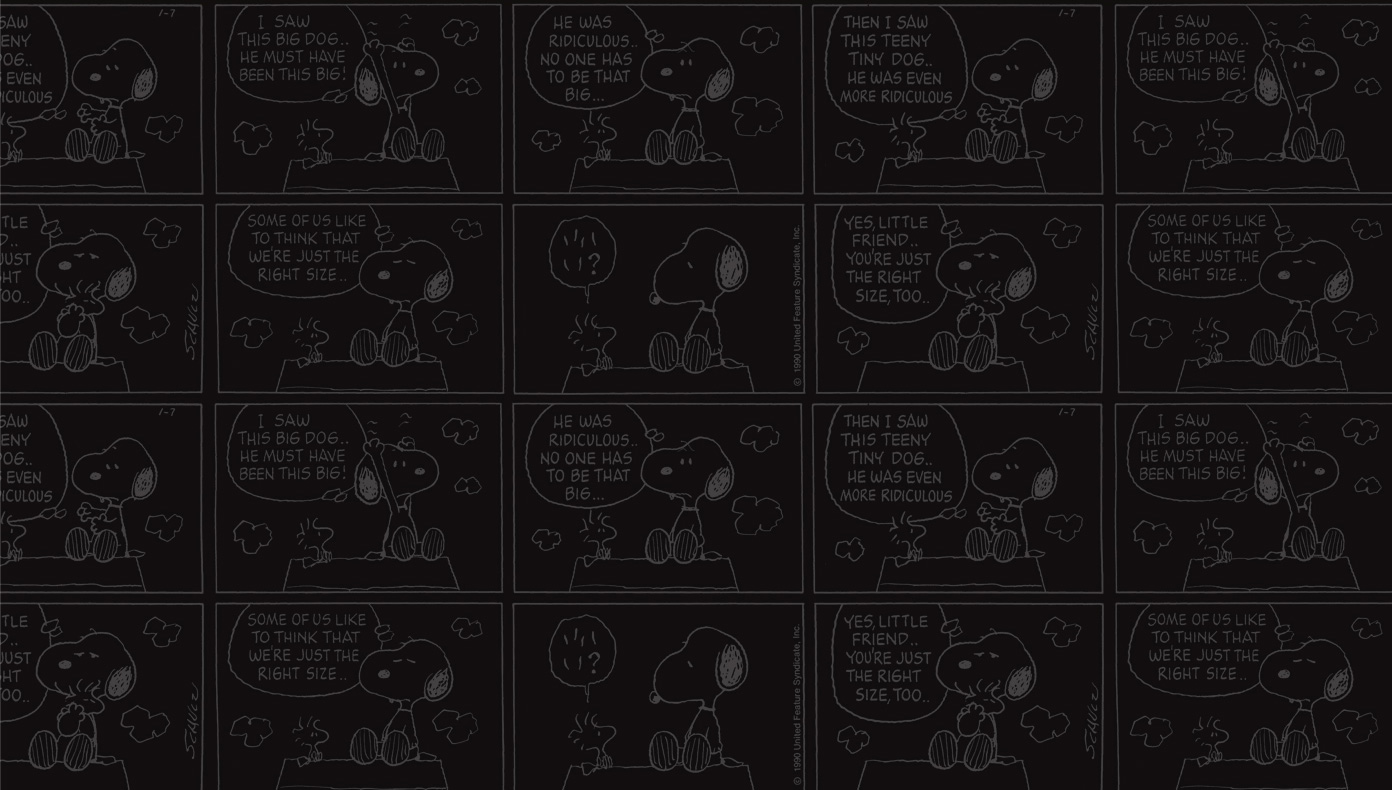 SAW
EENY
OG..
S EVEN
ICULOUS
1-7
I SAW
THIS BIG DOG..
HE MUST HAVE
BEEN THIS BIG!
HE WAS
RIDICULOUS..
NO ONE HAS
TO BE THAT
BIG...
THEN I SAW
THIS TEENY
TINY DOG..
HE WAS EVEN
MORE RIDICULOUS
1-7
I SAW
THIS BIG DOG..
HE MUST HAVE
BEEN THIS BIG!
TLE
D..
JUST
HT
TOO..
SCHULZ
SOME OF US LIKE
TO THINK THAT
WE'RE JUST THE
RIGHT SIZE..
?
© 1990 United Feature Syndicate, Inc.
YES, LITTLE
FRIEND..
YOU'RE JUST
THE RIGHT
SIZE, TOO..
SCHULZ
SOME OF US LIKE
TO THINK THAT
WE'RE JUST THE
RIGHT SIZE..
SAW
EENY
OG..
S EVEN
ICULOUS
1-7
I SAW
THIS BIG DOG..
HE MUST HAVE
BEEN THIS BIG!
HE WAS
RIDICULOUS..
NO ONE HAS
TO BE THAT
BIG...
THEN I SAW
THIS TEENY
TINY DOG..
HE WAS EVEN
MORE RIDICULOUS
1-7
I SAW
THIS BIG DOG..
HE MUST HAVE
BEEN THIS BIG!
TLE
D..
JUST
HT
TOO..
SCHULZ
SOME OF US LIKE
TO THINK THAT
WE'RE JUST THE
RIGHT SIZE..
?
© 1990 United Feature Syndicate, Inc.
YES, LITTLE
FRIEND..
YOU'RE JUST
THE RIGHT
SIZE, TOO..
SCHULZ
SOME OF US LIKE
TO THINK THAT
WE'RE JUST THE
RIGHT SIZE..